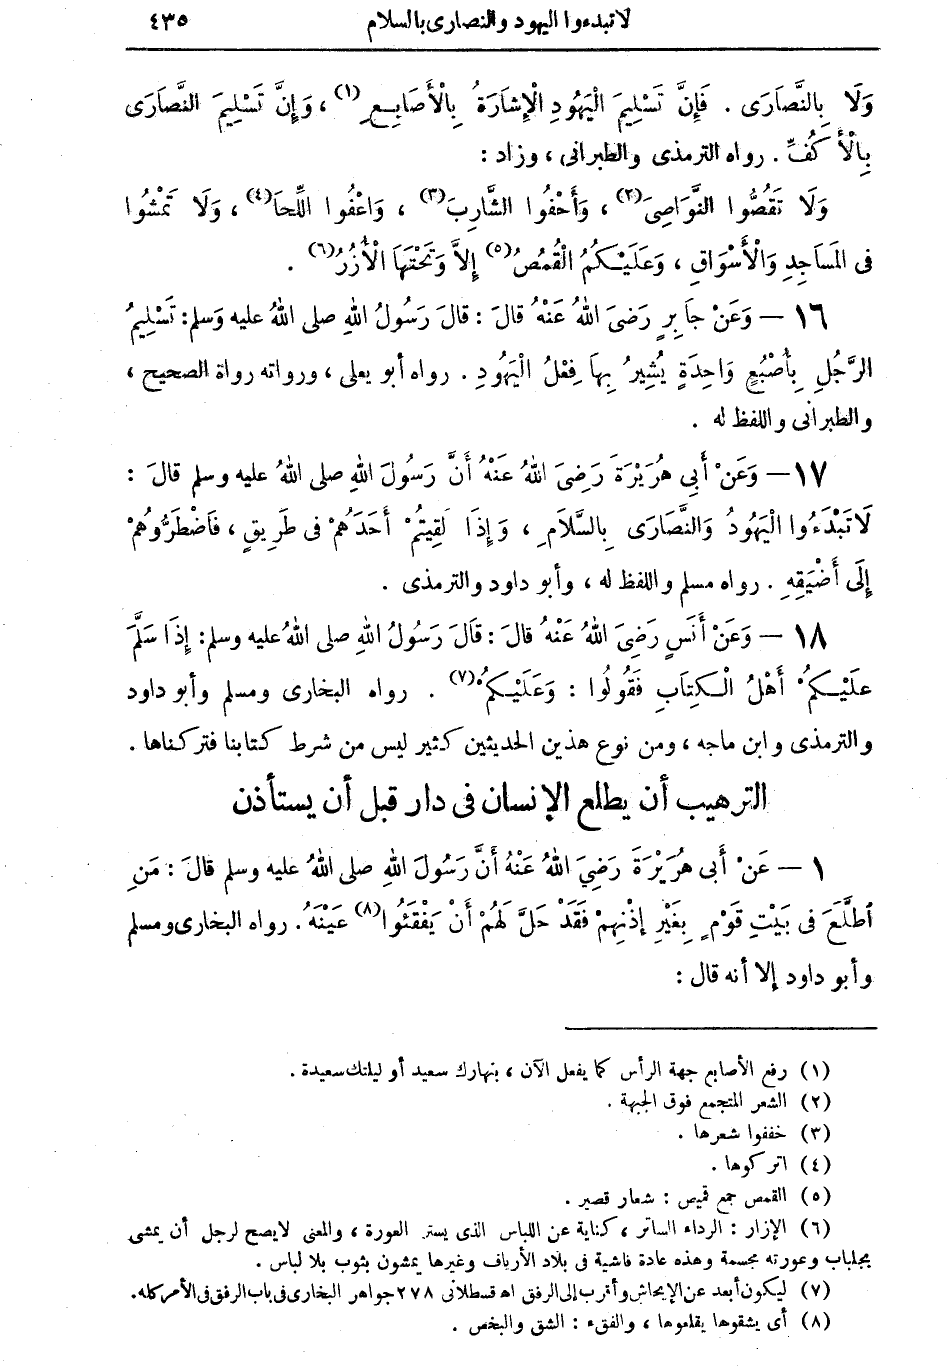 لا تبدءوا اليهود والنصارى بالسلام ٤٣٥
وَلَا بِالنَّصَارَى . فَإِنَّ تَسْلِيمَ الْيَهُودِ الْإِشَارَةُ بِالْأَصَابِعِ(١) ، وَإِنَّ تَسْلِيمَ النَّصَارَى
بِالْأَكُفِّ . رواه الترمذى والطبرانى ، وزاد :
وَلَا تَقُصُّوا النَّوَاصِىَ(٢) ، وَأَحْفُوا الشَّارِبَ(٣) ، وَاعْفُوا اللِّحَا(٤) ، وَلَا تَمْشُوا
فى المَسَاجِدِ وَالْأَسْوَاقِ ، وَعَلَيْكُمُ الْقُمُصُ(٥) إِلاَّ وَتَحْتَهَا الْأُزُرُ(٦) .
١٦ — وَعَنْ جَابِرٍ رَضِىَ اللهُ عَنْهُ قالَ : قالَ رَسُولُ اللهِ صلى اللهُ عليه وَسلم : تَسْلِيمُ
الرَّجُلِ بِأُصْبُعٍ وَاحِدَةٍ يُشِيرُ بِهَا فِعْلُ الْيَهُودِ . رواه أبو يعلى ، ورواته رواة الصحيح ،
والطبرانى واللفظ له .
١٧ — وَعَنْ أَبِى هُرَيْرَةَ رَضِىَ اللهُ عَنْهُ أَنَّ رَسُولَ اللهِ صلى اللهُ عليه وسلم قالَ :
لَا تَبْدَءُوا الْيَهُودُ وَالنَّصَارَى بِالسَّلَامِ ، وَإِذَا لَقِيتُمْ أَحَدَهُمْ فى طَرِيقٍ ، فَاضْطَرُّوهُمْ
إِلَى أَضْيَقِهِ . رواه مسلم واللفظ له ، وأبو داود والترمذى .
١٨ — وَعَنْ أَنَسٍ رَضِىَ اللهُ عَنْهُ قالَ : قَالَ رَسُولُ اللهِ صلى اللهُ عليه وسلم : إِذَا سَلَّمَ
عَلَيْكُمْ أَهْلُ الْكِتَابِ فَقُولُوا : وَعَلَيْكُمْ(٧) . رواه البخارى ومسلم وأبو داود
والترمذى وابن ماجه ، ومن نوع هذين الحديثين كثير ليس من شرط كتابنا فتركناها .
الترهيب أن يطلع الإنسان فى دار قبل أن يستأذن
١ — عَنْ أَبى هُرَيْرَةَ رَضِيَ اللهُ عَنْهُ أَنَّ رَسُولَ اللهِ صلى اللهُ عليه وسلم قالَ : مَنِ
اطَّلَعَ فى بَيْتِ قَوْمٍ بِغَيْرِ إِذْنِهِمْ فَقَدْ حَلَّ لَهُمْ أَنْ يَفْقَئُوا(٨) عَيْنَهُ . رواه البخارى ومسلم
وأبو داود إلا أنه قال :
(١) رفع الأصابع جهة الرأس كما يفعل الآن ، بنهارك سعيد أو ليلتك سعيدة .
(٢) الشعر المتجمع فوق الجبهة .
(٣) خففوا شعرها .
(٤) اتركوها .
(٥) القمص جمع قميص : شعار قصير .
(٦) الإزار : الرداء الساتر ، كناية عن اللباس الذى يستر العورة ، والمعنى لا يصح لرجل أن يمشى
بجلباب وعورته مجسمة وهذه عادة فاشية فى بلاد الأرياف وغيرها يمشون بثوب بلا لباس .
(٧) ليكون أبعد عن الإيحاش وأقرب إلى الرفق اه قسطلانى ٢٧٨ جواهر البخارى فى باب الرفق فى الأمر كله .
(٨) أى يشقوها يقلعوها ، والفقء : الشق والبخص .